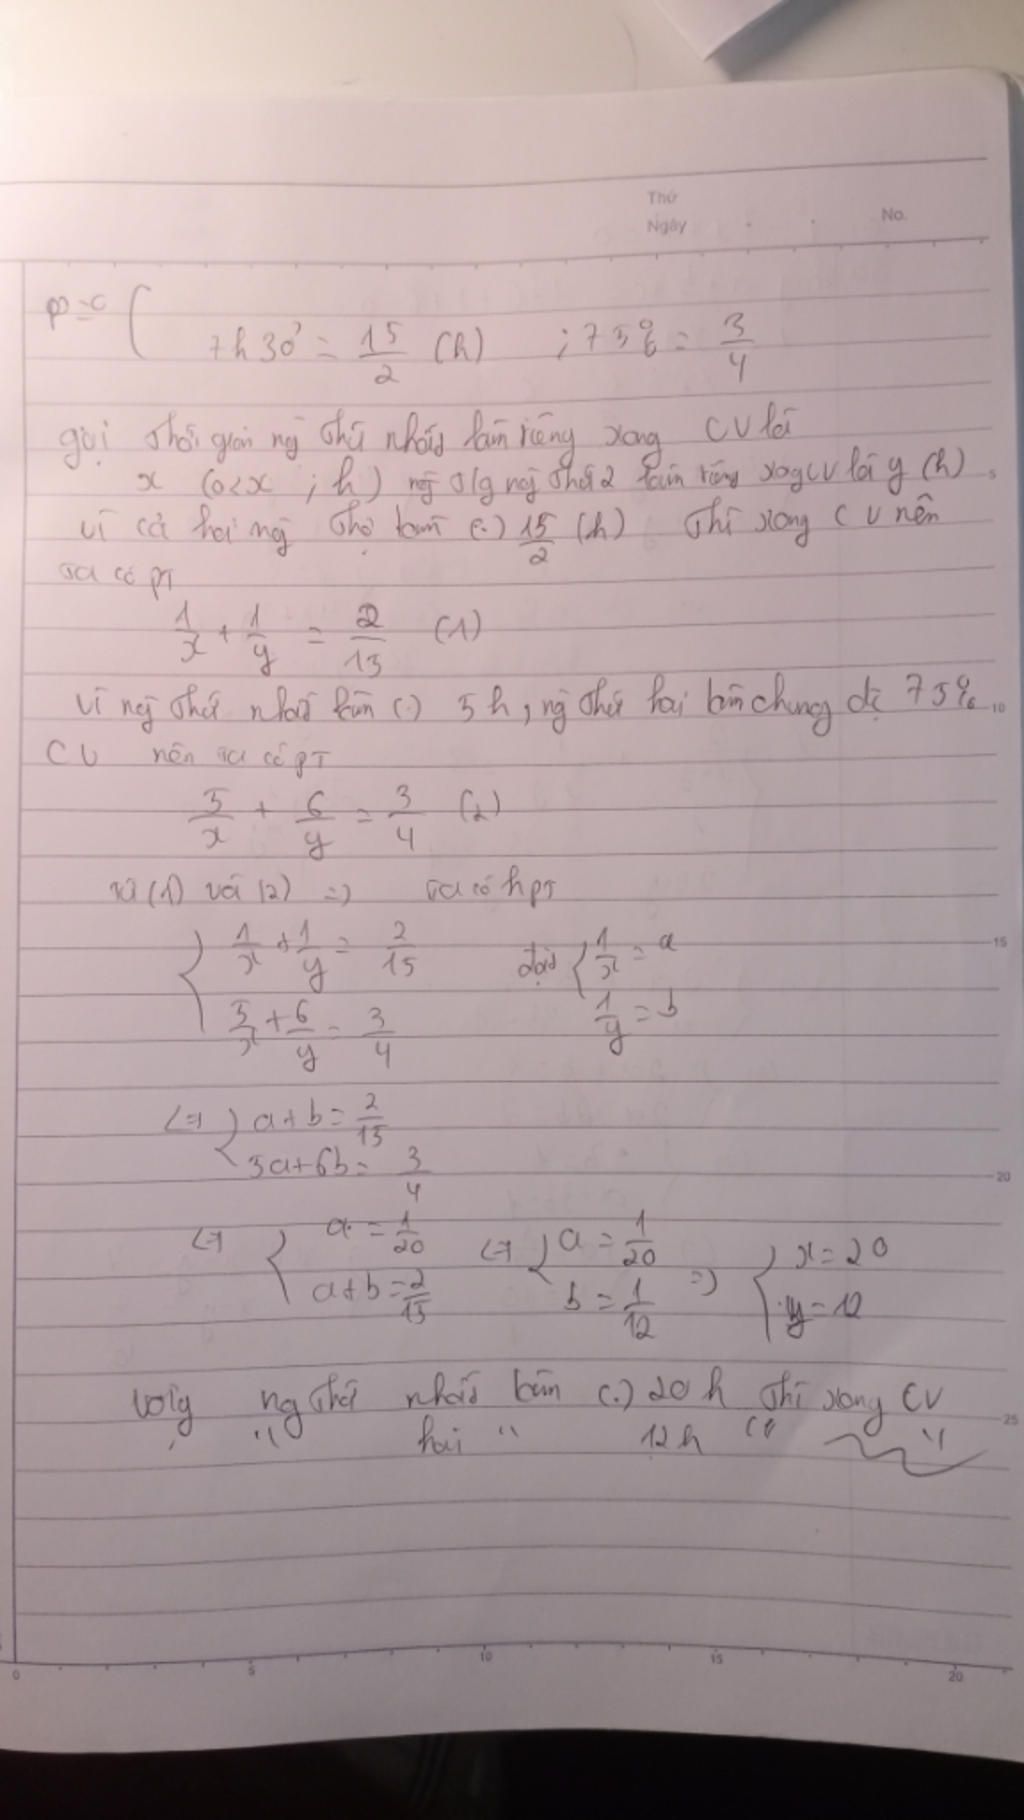 Thứ
Ngày . . No.
7h 30' = 15/2 (h) ; 75% = 3/4
gọi thời gian ng thứ nhất làm riêng xong CV là
x (0<x ; h) t/g ng thứ 2 làm riêng xog CV là y (h)
vì cả hai ng thợ làm (.) 15/2 (h) thì xong CV nên
ta có pT
1/x + 1/y = 2/15 (1)
vì ng thứ nhất làm (.) 5h, ng thứ hai làm chung đc 75%
CV nên ta có pT
5/x + 6/y = 3/4 (2)
từ (1) và (2) => ta có hpT
{ 1/x + 1/y = 2/15 đặt { 1/x = a
5/x + 6/y = 3/4 1/y = b
<=> { a + b = 2/15
5a + 6b = 3/4
<=> { a = 1/20 <=> { a = 1/20 => { x = 20
a + b = 2/15 b = 1/12 y = 12
Vậy ng thứ nhất làm (.) 20h thì xong CV
" hai " 12h " "
10
15
20
25
0 5 10 15 20